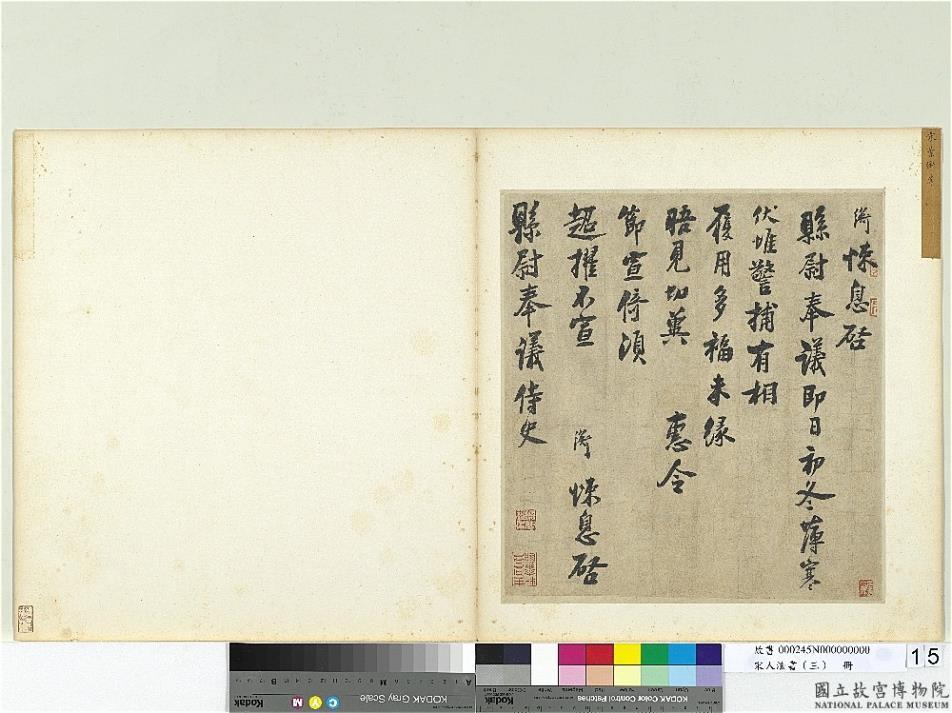 衡悚息啓
縣尉奉議即日初冬薄寒
伏惟警捕有相
履用多福未緣
晤見切冀　惠令
節宣倚須
超擢不宣
衡　悚息啓
縣尉奉議侍史
故書 000245N000000000
宋人法書(三)　冊
15
國立故宮博物院
NATIONAL PALACE MUSEUM
KODAK Gray Scale
Kodak
C
Y
M
KODAK Color Control Patches
Kodak